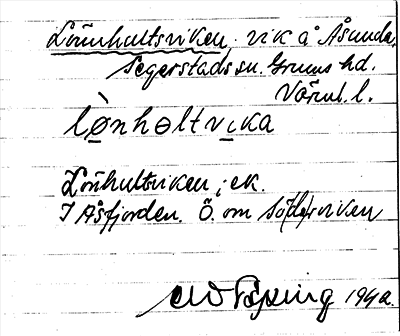 Lönnhultsviken, vik å Åsunda,
Segerstads sn. Grums hd.
Värml. l.
lø̀nhɵltvıka
Lönhultsviken, ek.
I Åsfjorden. Ö. om Sö(de)rviken
1942.